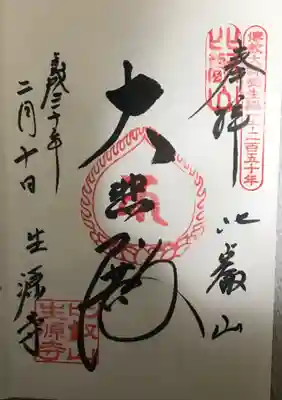 二百五十年
奉拝
比叡山
大悲殿
平成三十年
二月十日
生源寺
比叡山
生源寺